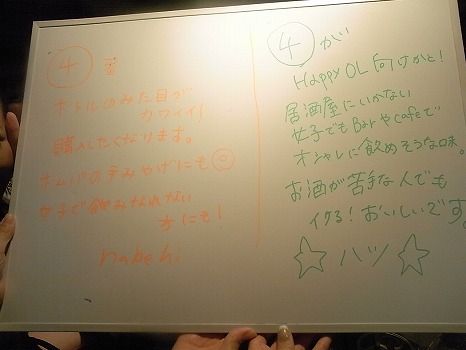 ④
ボトルのみた目が
カワイイ！
購入したくなります。
ホムパの手みやげにも◎
女子で飲みなれない
方にも！
nabeki
④が
Happy OL向けかと！
居酒屋にいかない
女子でもBarやCafeで
オシャレに飲めそうな味。
お酒が苦手な人でも
イケる！おいしいです。
☆ハツ☆